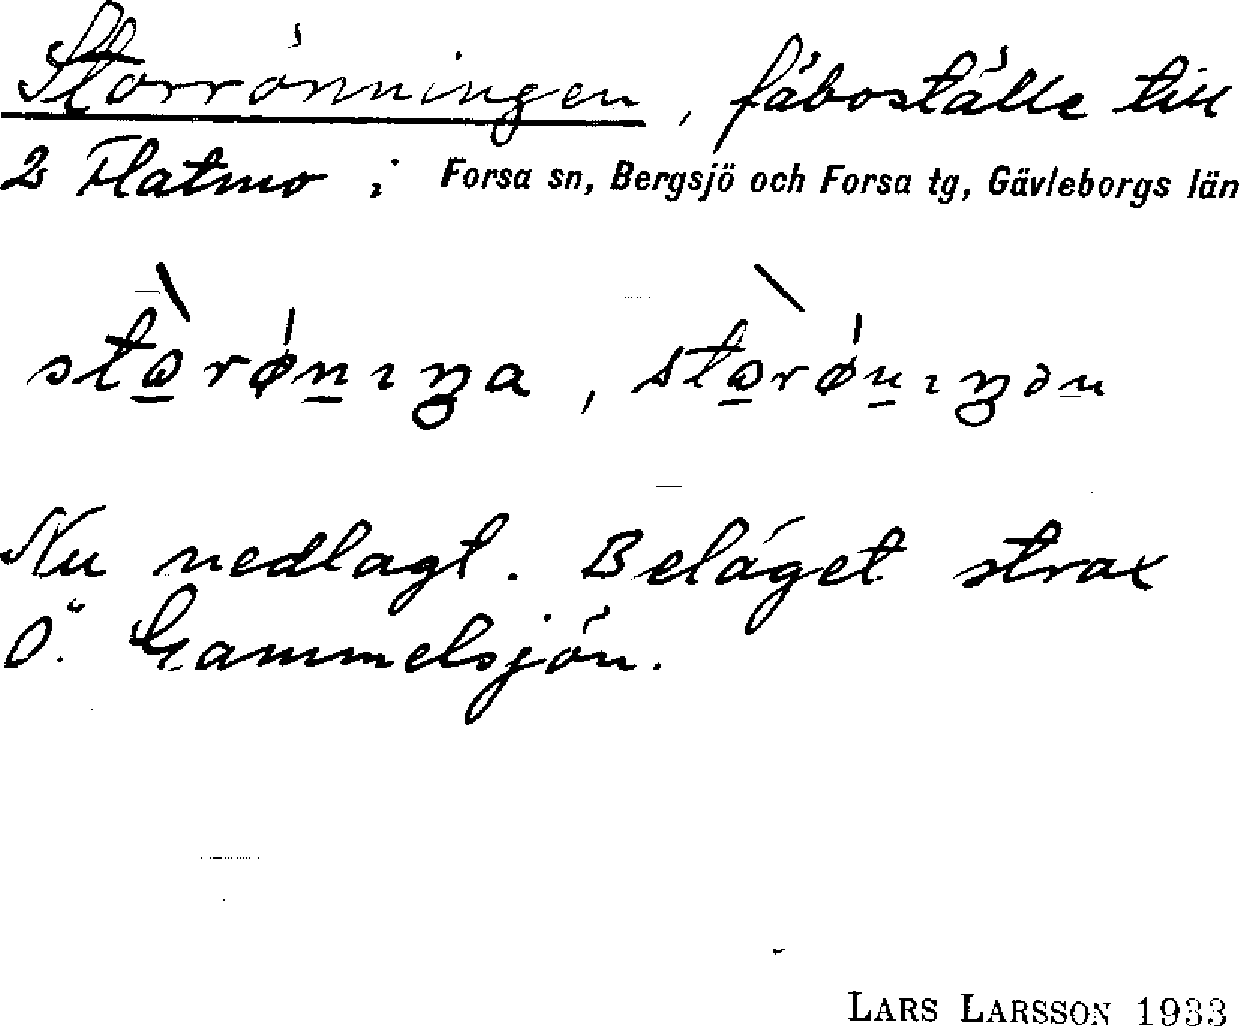 Storrönningen, fäboställe till
2 Flatmo i Forsa sn, Bergsjö och Forsa tg, Gävleborgs län
Nu nedlagt. Beläget strax
Ö. Gammelsjön.
LARS LARSSON 1933